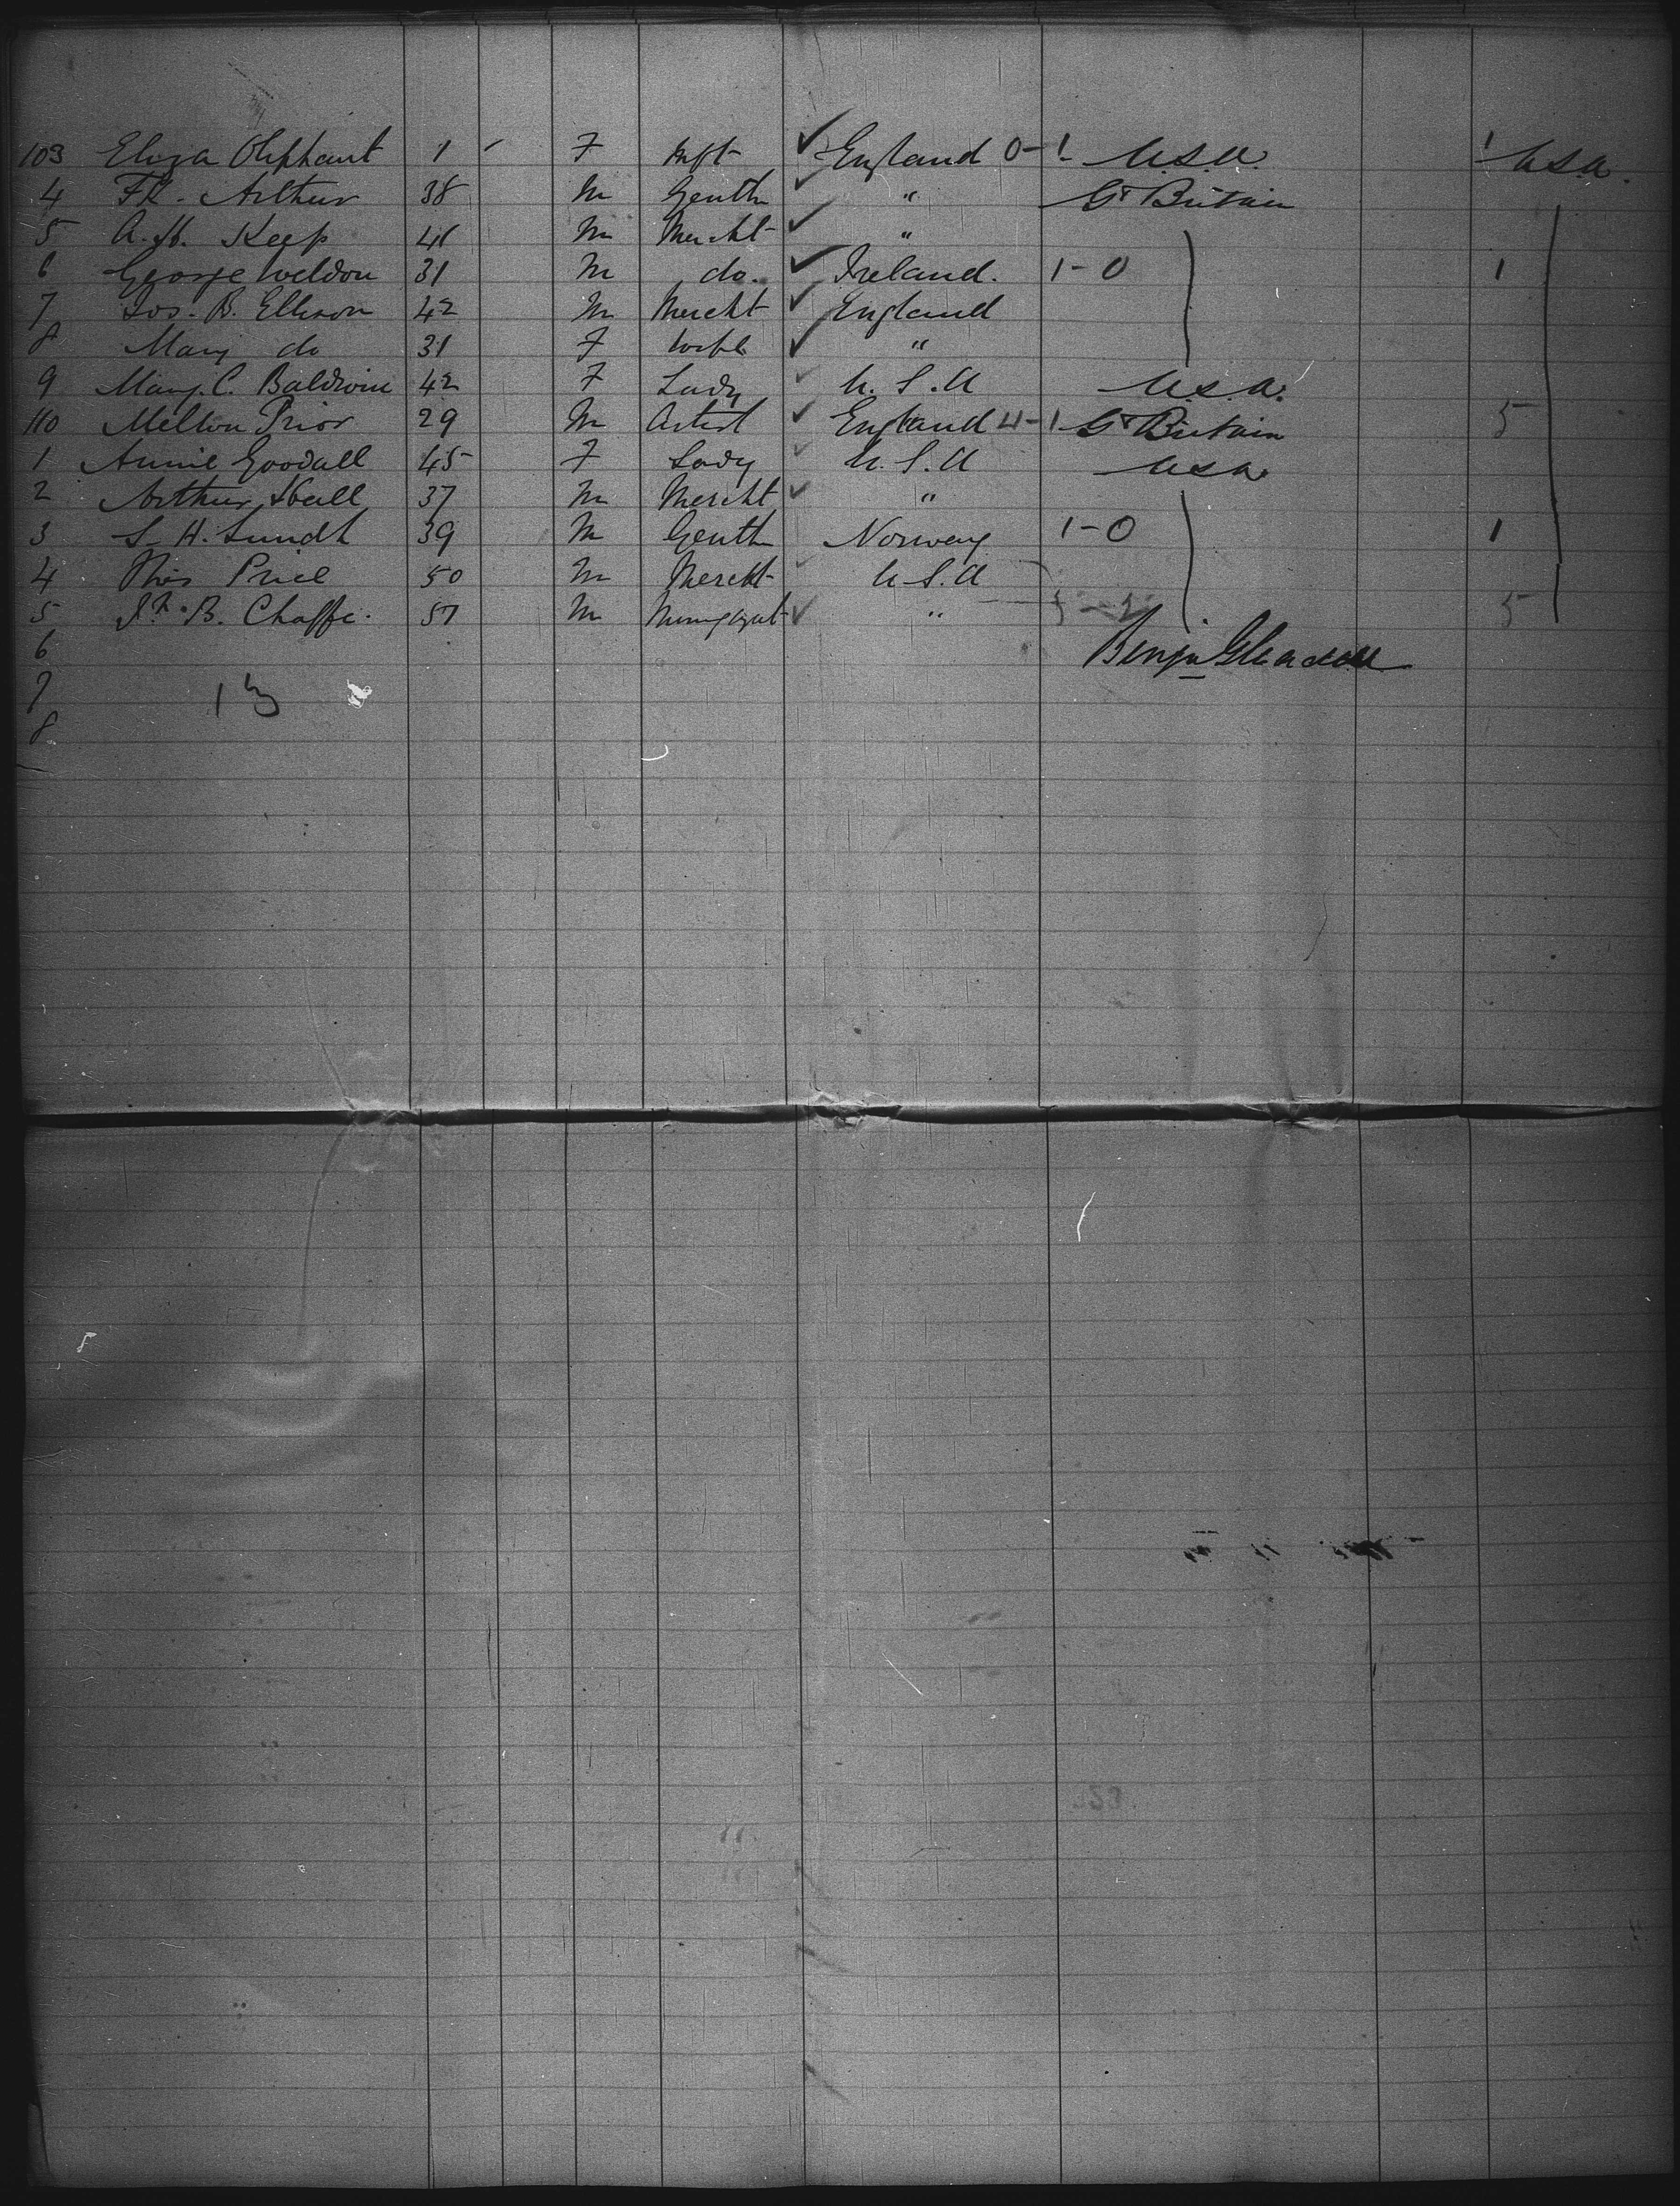 103 Eliza Oliphant 1 F Inft England 0-1 U.S.A. 1 USA.
4 Fk. Arthur 38 M Gentn " Gt Britain
5 A. H. Keep 41 M Mercht "
6 George Weldon 31 M do. Ireland. 1-0 1
7 Jos. B. Ellison 42 M Mercht England
8 Mary do 31 F Wife "
9 Mary. C. Baldwin 42 F Lady U.S.A U.S.A.
110 Melton Prior 29 M Artist England 4-1 Gt Britain 5
1 Annie Goodall 45 F Lady U.S.A USA
2 Arthur 37 M Mercht "
3 S. H. Lundt 39 M Gentn Norway 1-0 1
4 Thos Price 50 M Mercht U.S.A
5 Jr. B. Chaffe. 57 M " 5
6 Benjn Gleadell
7 13
8